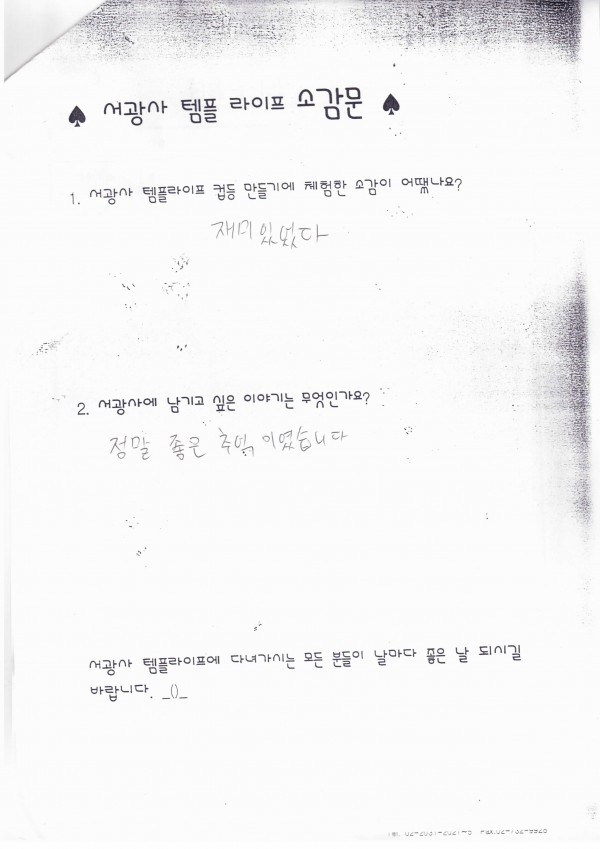 ♠ 서광사 템플 라이프 소감문 ♠
1. 서광사 템플라이프 컵등 만들기에 체험한 소감이 어땠나요?
재미있었다
2. 서광사에 남기고 싶은 이야기는 무엇인가요?
정말 좋은 추억이였습니다
서광사 템플라이프에 다녀가시는 모든 분들이 날마다 좋은 날 되시길
바랍니다. _()_